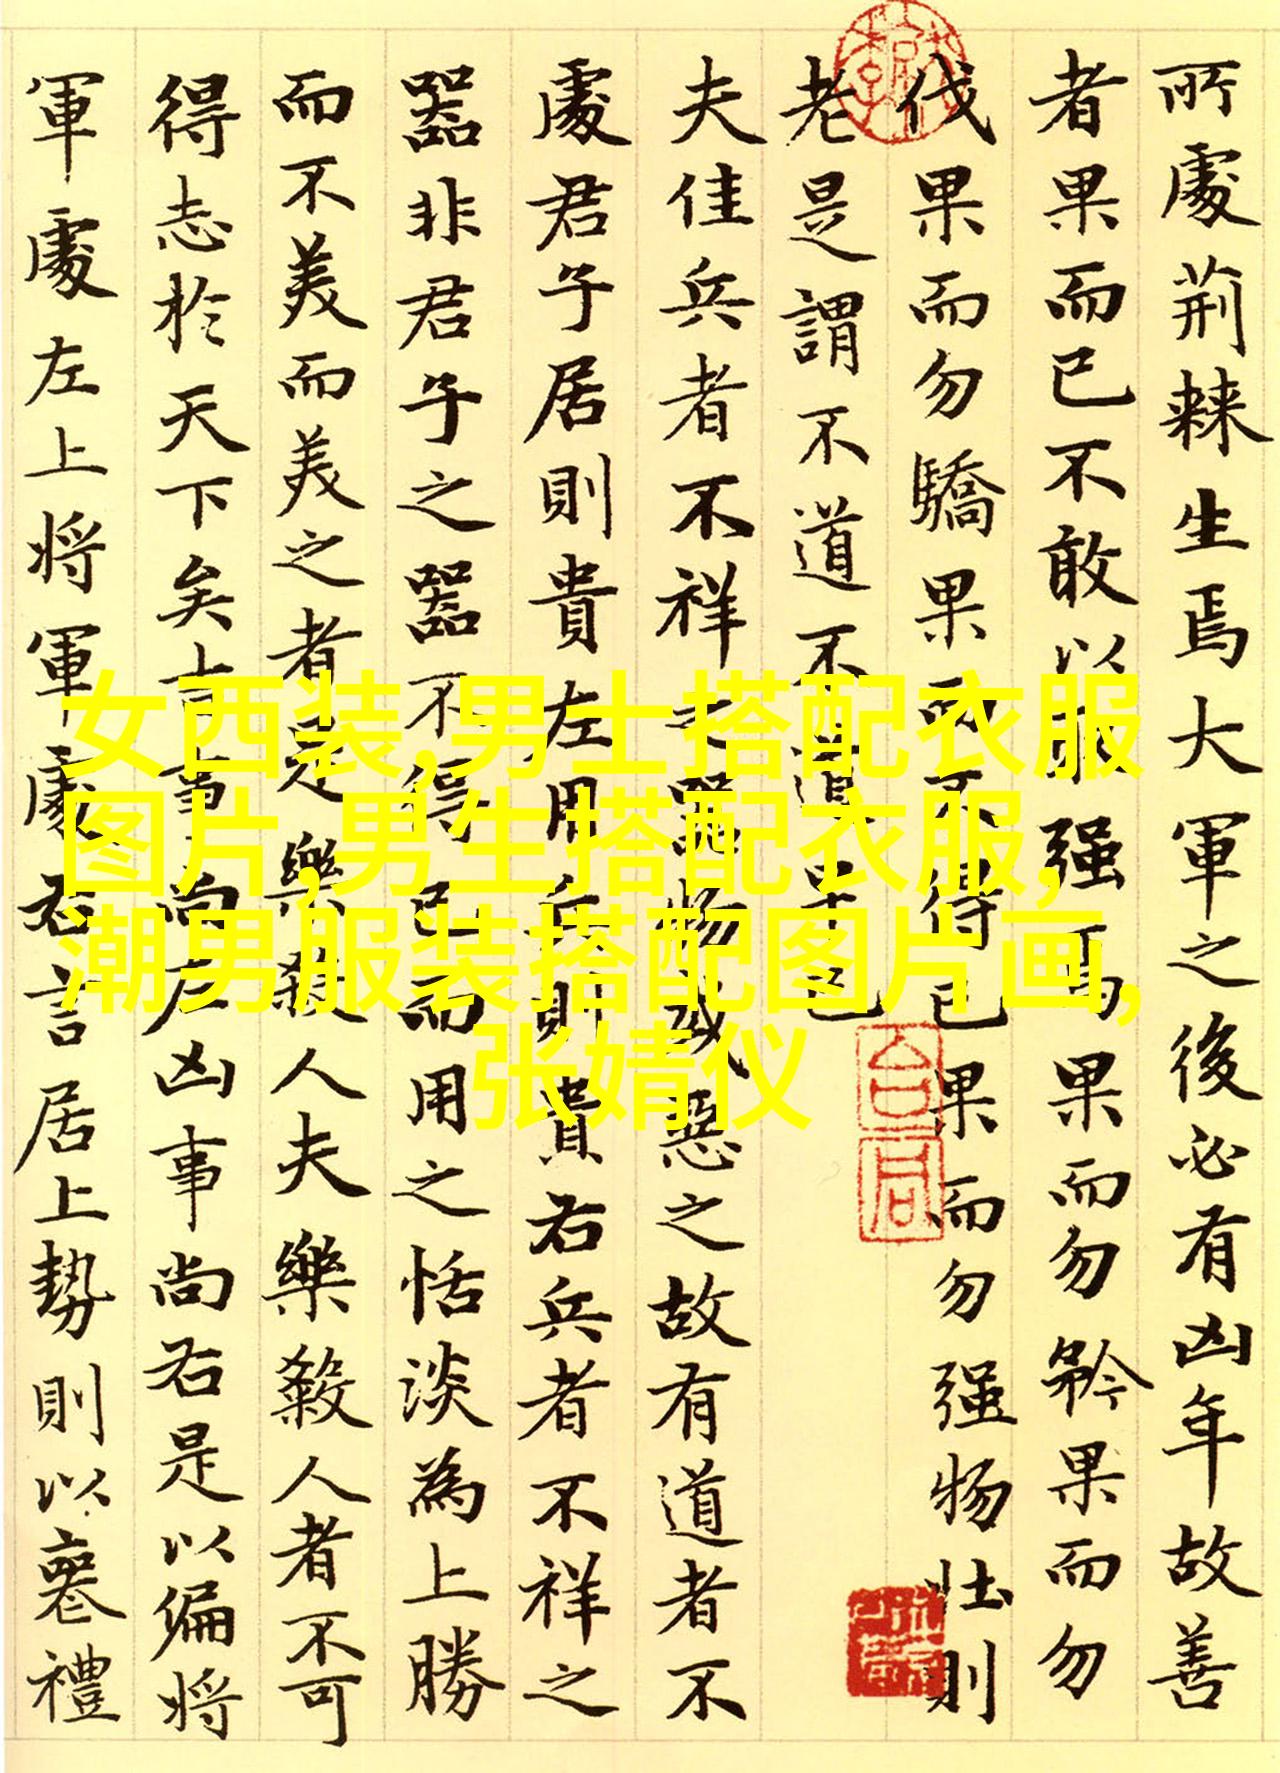 所處荆棘生焉大軍之後必有凶年故善
者果而已不敢以取强焉果而勿矜果而勿
伐果而勿驕果而不得已果而勿强物壯則
老是謂不道不道早已
夫佳兵者不祥之器物或惡之故有道者不
處君子居則貴左用兵則貴右兵者不祥之
器非君子之器不得已而用之恬淡為上勝
而不美而美之者是樂殺人夫樂殺人者不可
得志於天下矣吉事尚左凶事尚右是以偏將
軍處左上將軍處右言居上勢則以喪禮
女西装,男士搭配衣服
图片,男生搭配衣服,
潮男服装搭配图片画,
张婧仪